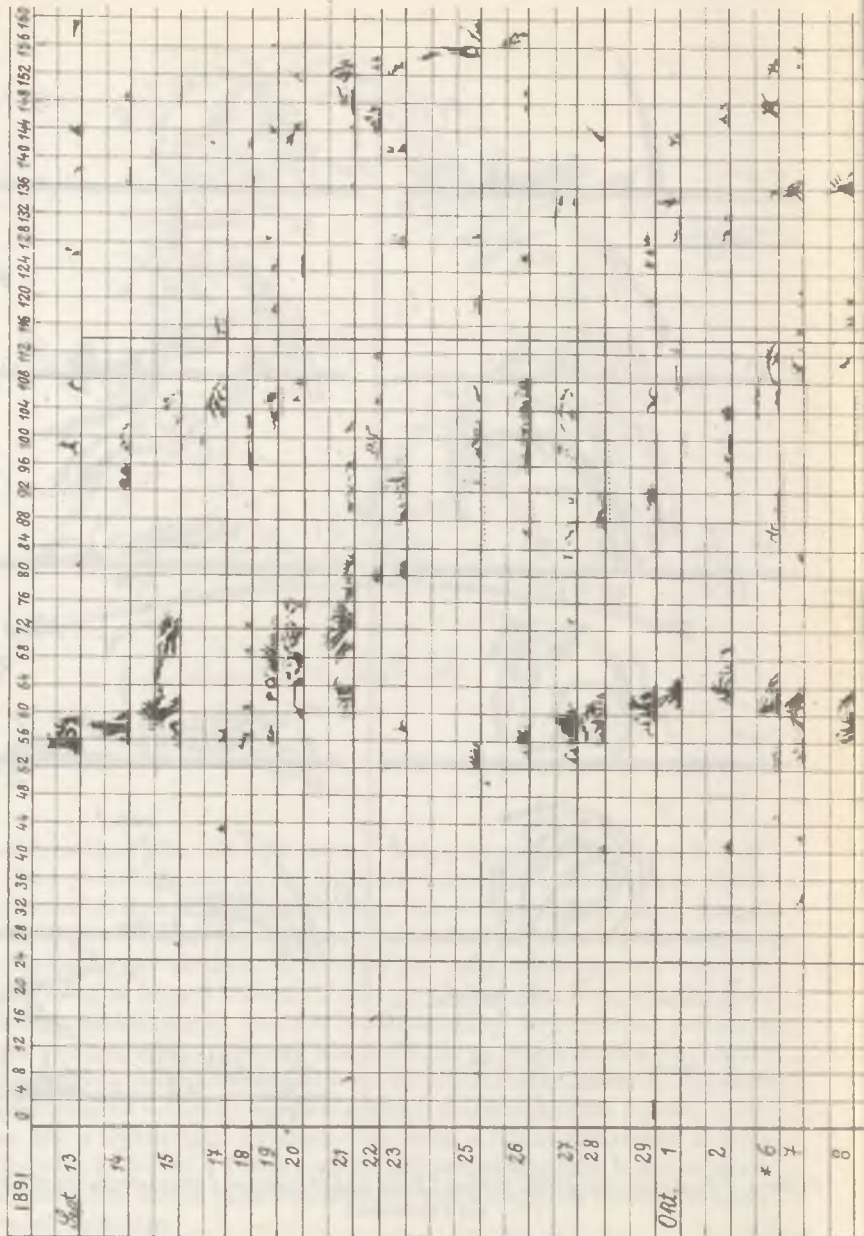 1891 0 4 8 12 16 20 24 28 32 36 40 44 48 52 56 60 64 68 72 76 80 84 88 92 96 100 104 108 112 116 120 124 128 132 136 140 144 148 152 156 160
Sept 13
14
15
17
18
19
20
21
22
23
25
26
27
28
29
Okt. 1
2
* 6
7
8